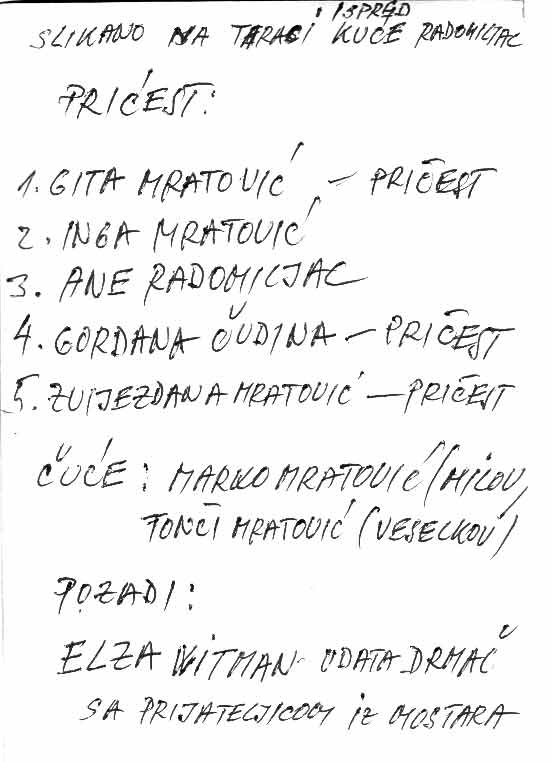 SLIKANO NA TERACI ISPRED KUĆE RADOMILJAC
PRIĆEST:
1. GITA MRATOVIĆ – PRIČEST
2. INGA MRATOVIĆ
3. ANE RADOMILJAC
4. GORDANA ČUDINA – PRIČEST
5. ZVIJEZDANA MRATOVIĆ – PRIČEST
ČUĆE: MARKO MRATOVIĆ (MILOV)
TONČI MRATOVIĆ (VESELKOV)
POZADI:
ELZA WITMAN UDATA DRMAČ
SA PRIJATELJICOM IZ MOSTARA